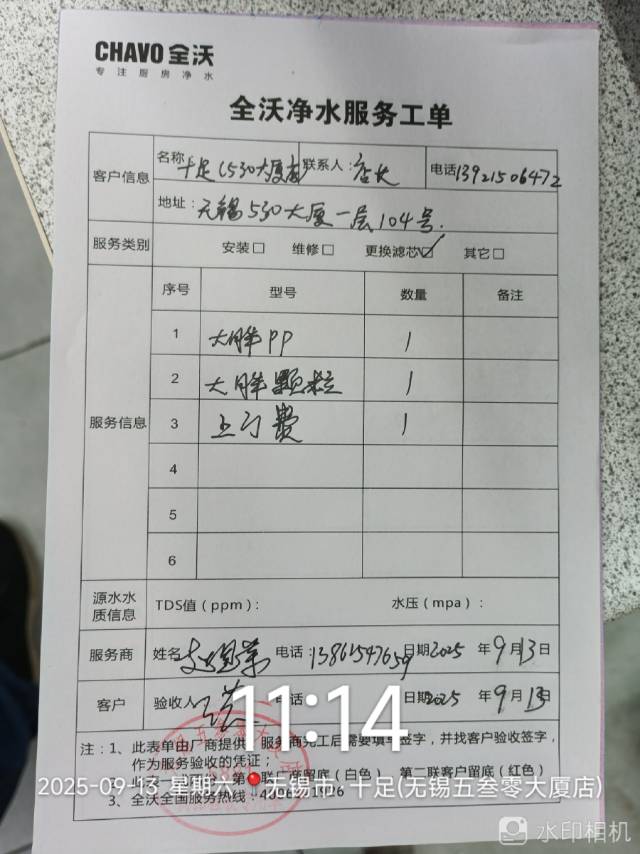 CHAVO 全沃
专注厨房净水
全沃净水服务工单
客户信息 名称 十足(530大厦店 联系人: 店长 电话13921506472
地址: 无锡530大厦一层104号.
服务类别 安装□ 维修□ 更换滤芯☑ 其它□
服务信息 序号 型号 数量 备注
1 大胖PP 1
2 大胖颗粒 1
3 上门费 1
4
5
6
源水水质信息 TDS值(ppm): 水压(mpa):
服务商 姓名 电话:13861547659 日期2025年9月13日
客户 验收人 电话 日期2025年9月13日
11:14
注:1、此表单由厂商提供,服务商完工后需要填单签字,并找客户验收签字,
作为服务验收的凭证;
第一联厂商留底(白色) 第二联客户留底(红色)
2025-09-13 星期六 无锡市·十足(无锡五叁零大厦店)
3、全沃全国服务热线:
水印相机